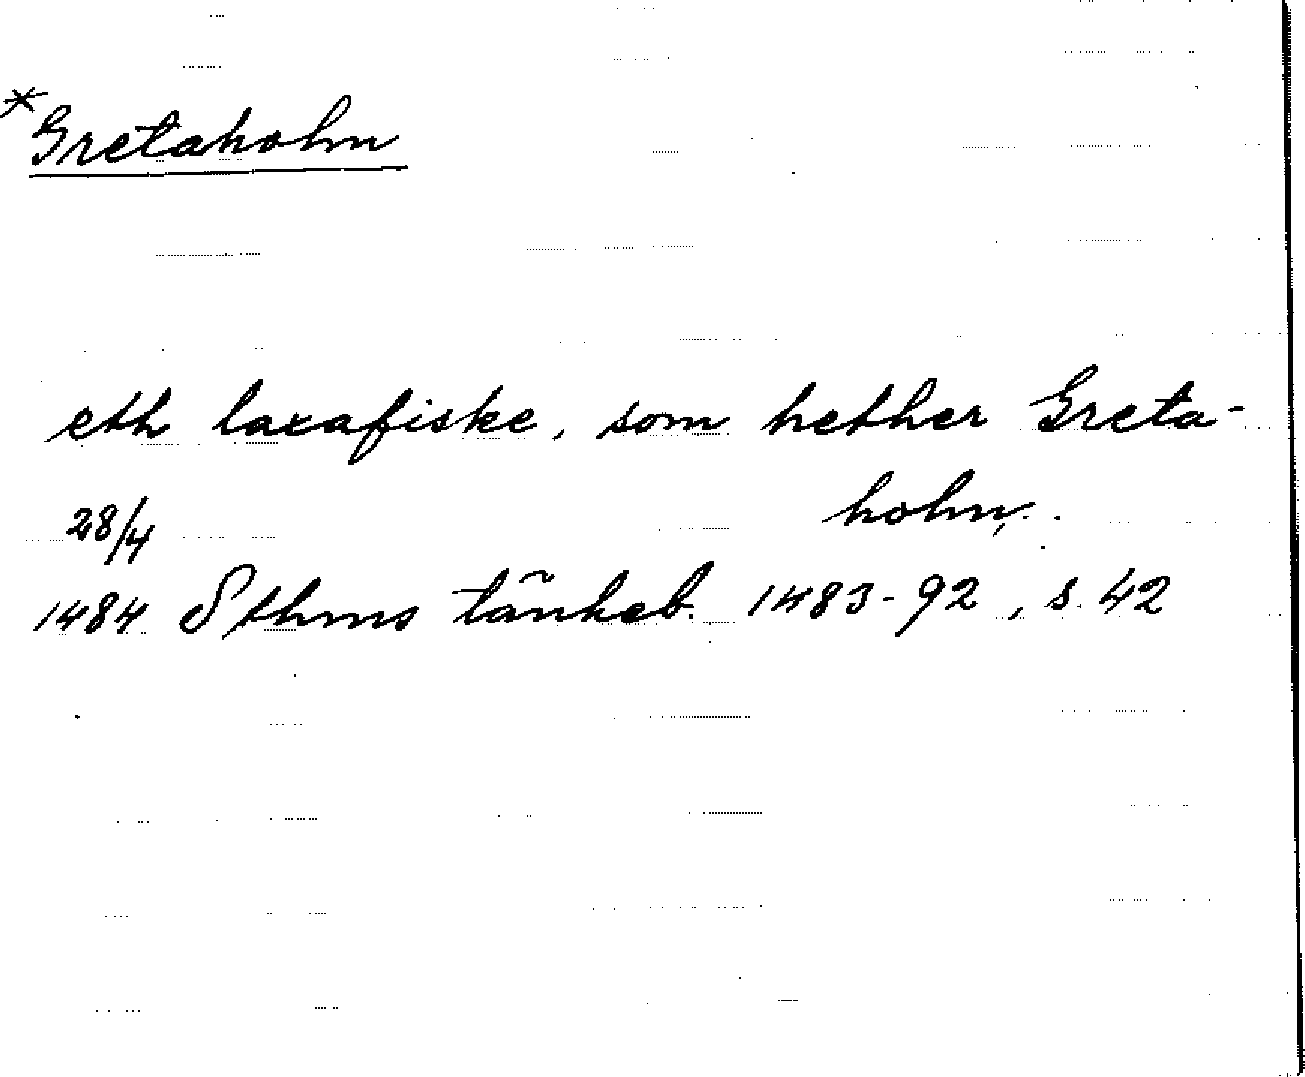 *Gretaholm
eth laxafiske, som hether Greta-
holm.
28/4
1484 Sthms tänkeb. 1483-92, s. 42